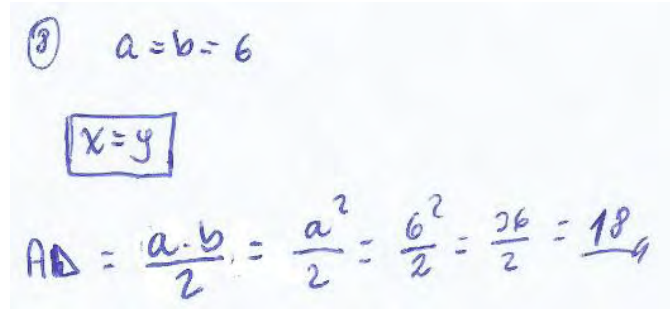 ⑧ a = b = 6
x = y
A△ = a·b/2 = a²/2 = 6²/2 = 36/2 = 18